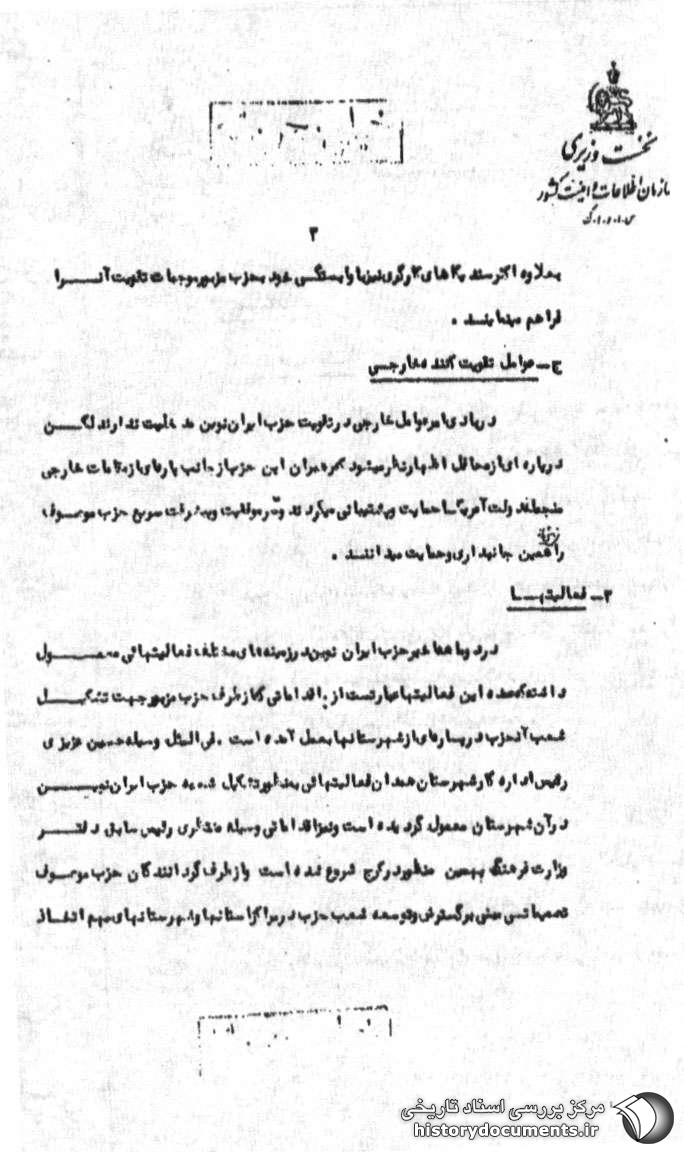 نخست وزیری
سازمان اطلاعات و امنیت کشور
س.ا.و.ا.ک
۳
بعلاوه اکثر سندیکاهای کارگری نیز با وابستگی خود بحزب مزبور موجبات تقویت آنرا
فراهم مینمایند .
ج - عوامل تقویت کننده خارجی
در بادی امر عوامل خارجی در تقویت حزب ایران نوین مدخلیت ندارند لکن
در پاره ای از محافل اظهار نظر میشود که رهبران این حزب از جانب پاره ای از مقامات خارجی
منجمله دولت آمریکا حمایت و پشتیبانی میگردند و سر موفقیت و پیشرفت سریع حزب موصوف
را همین جانبداری و حمایت میدانند .
۲ - فعالیتها
در دو ماهه اخیر حزب ایران نوین در زمینه های مختلف فعالیتهائی معمول
داشته که عمده این فعالیتها عبارتست از اقداماتی که از طرف حزب مزبور جهت تشکیل
شعب آنحزب در پاره ای از شهرستانها بعمل آمده است . فی المثل وسیله حسین عزیزی
رئیس اداره کار شهرستان همدان فعالیتهائی بمنظور تشکیل شعبه حزب ایران نوین
در آن شهرستان معمول گردیده است و نیز اقداماتی وسیله منتظری رئیس سابق دفتر
وزارت فرهنگ بهمین منظور در کرج شروع شده است و از طرف گردانندگان حزب موصوف
تصمیماتی مبنی بر گسترش و توسعه شعب حزب در مراکز استانها و شهرستانهای مهم اتخاذ
مرکز بررسی اسناد تاریخی
historydocuments.ir